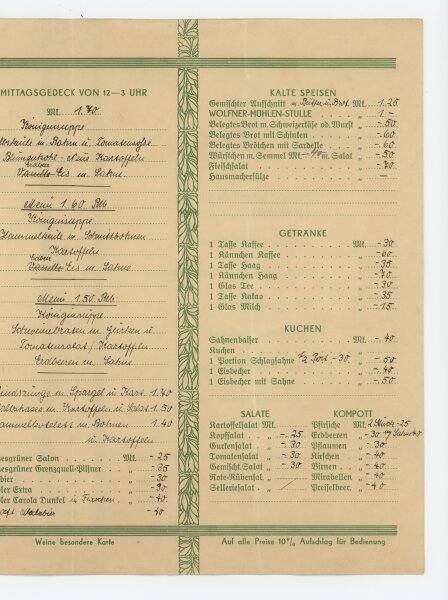 MITTAGSGEDECK VON 12—3 UHR
Mk. 1.70
Königinsuppe
in Rahm u. Tomatensoße
Blumenkohl - neue Kartoffeln
Erdbeer Eis m. Sahne
Menü 1.60 Rm
Königinsuppe
Hammelkeule m. Schnittbohnen
Kartoffeln
Eis m. Sahne
Menü 1.50 Rm
Königinsuppe
Schweinebraten m. Gurken u.
Tomatensalat / Kartoffeln
Erdbeeren m. Sahne
m. Spargel u. Kart. 1.70
m. Kartoffeln u. Salat 1.50
m. Bohnen 1.40
u. Kartoffeln
esgrüner Salon Mk. -25
esgrüner Grenzquell-Pilsner „ -35
bier „ -30
ler Extra „ -30
ler Carola Dunkel in Flaschen „ -40
-40
Weine besondere Karte
KALTE SPEISEN
Gemischter Aufschnitt m. Butter u. Brot Mk. 1.25
WOLFNER-MÜHLEN-STULLE „ 1 -
Belegtes Brot m. Schweizerkäse od. Wurst „ -50
Belegtes Brot mit Schinken „ -60
Belegtes Brötchen mit Sardelle „ -60
Würstchen m. Semmel Mk. -40 m. Salat „ -50
Fleischsalat „ -70
Hausmachersülze „ —
GETRÄNKE
1 Tasse Kaffee Mk. -30
1 Kännchen Kaffee „ -60
1 Tasse Haag „ -35
1 Kännchen Haag „ -70
1 Glas Tee „ -30
1 Tasse Kakao „ -35
1 Glas Milch „ -15
KUCHEN
Sahnenbaiser Mk. -40
Kuchen
1 Portion Schlagsahne 1/2 Port -30 „ -50
1 Eisbecher „ -40
1 Eisbecher mit Sahne „ -50
SALATE
Kartoffelsalat Mk.
Kopfsalat „ -25
Gurkensalat „ -30
Tomatensalat „ -30
Gemischt.Salat „ -30
Rote-Rübensal. „
Selleriesalat „
KOMPOTT
Pfirsiche Mk. 2 Stück -25
Erdbeeren „ -30 m. Sahne 40
Pflaumen „ -30
Kirschen „ -40
Birnen „ -40
Mirabellen „ -40
Preißelbeer. „ -40
Auf alle Preise 10% Aufschlag für Bedienung